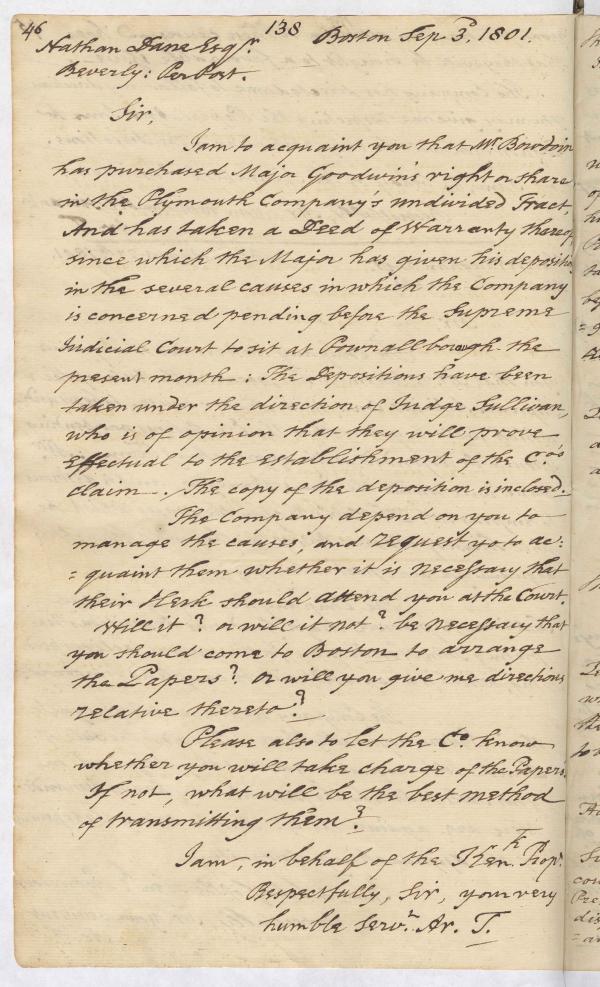 46
138
Nathan Dane Esqr. Boston Sep. 3d. 1801.
Beverly: Per Post.
Sir,
I am to acquaint you that Mr. Bowdoin
has purchased Major Goodwin's right or share
in the Plymouth Company's undivided Tract,
And has taken a Deed of Warranty thereof,
since which the Major has given his deposition
in the several causes in which the Company
is concerned pending before the Supreme
Judicial Court to sit at Pownallborough the
present month: The Depositions have been
taken under the direction of Judge Sullivan,
who is of opinion that they will prove
effectual to the establishment of the Co's
claim. The copy of the deposition is inclosed.
The Company depend on you to
manage the causes, and request yo to ac:
=quaint them whether it is necessary that
their Clerk should attend you at the Court.
Will it? or will it not? be necessary that
you should come to Boston to arrange
the Papers? or will you give me directions
relative thereto?
Please also to let the Co. know
whether you will take charge of the Papers?
If not, what will be the best method
of transmitting them?
I am, in behalf of the Kenk. Propr.
Respectfully, Sir, your very
humble Servt. Ar. T.